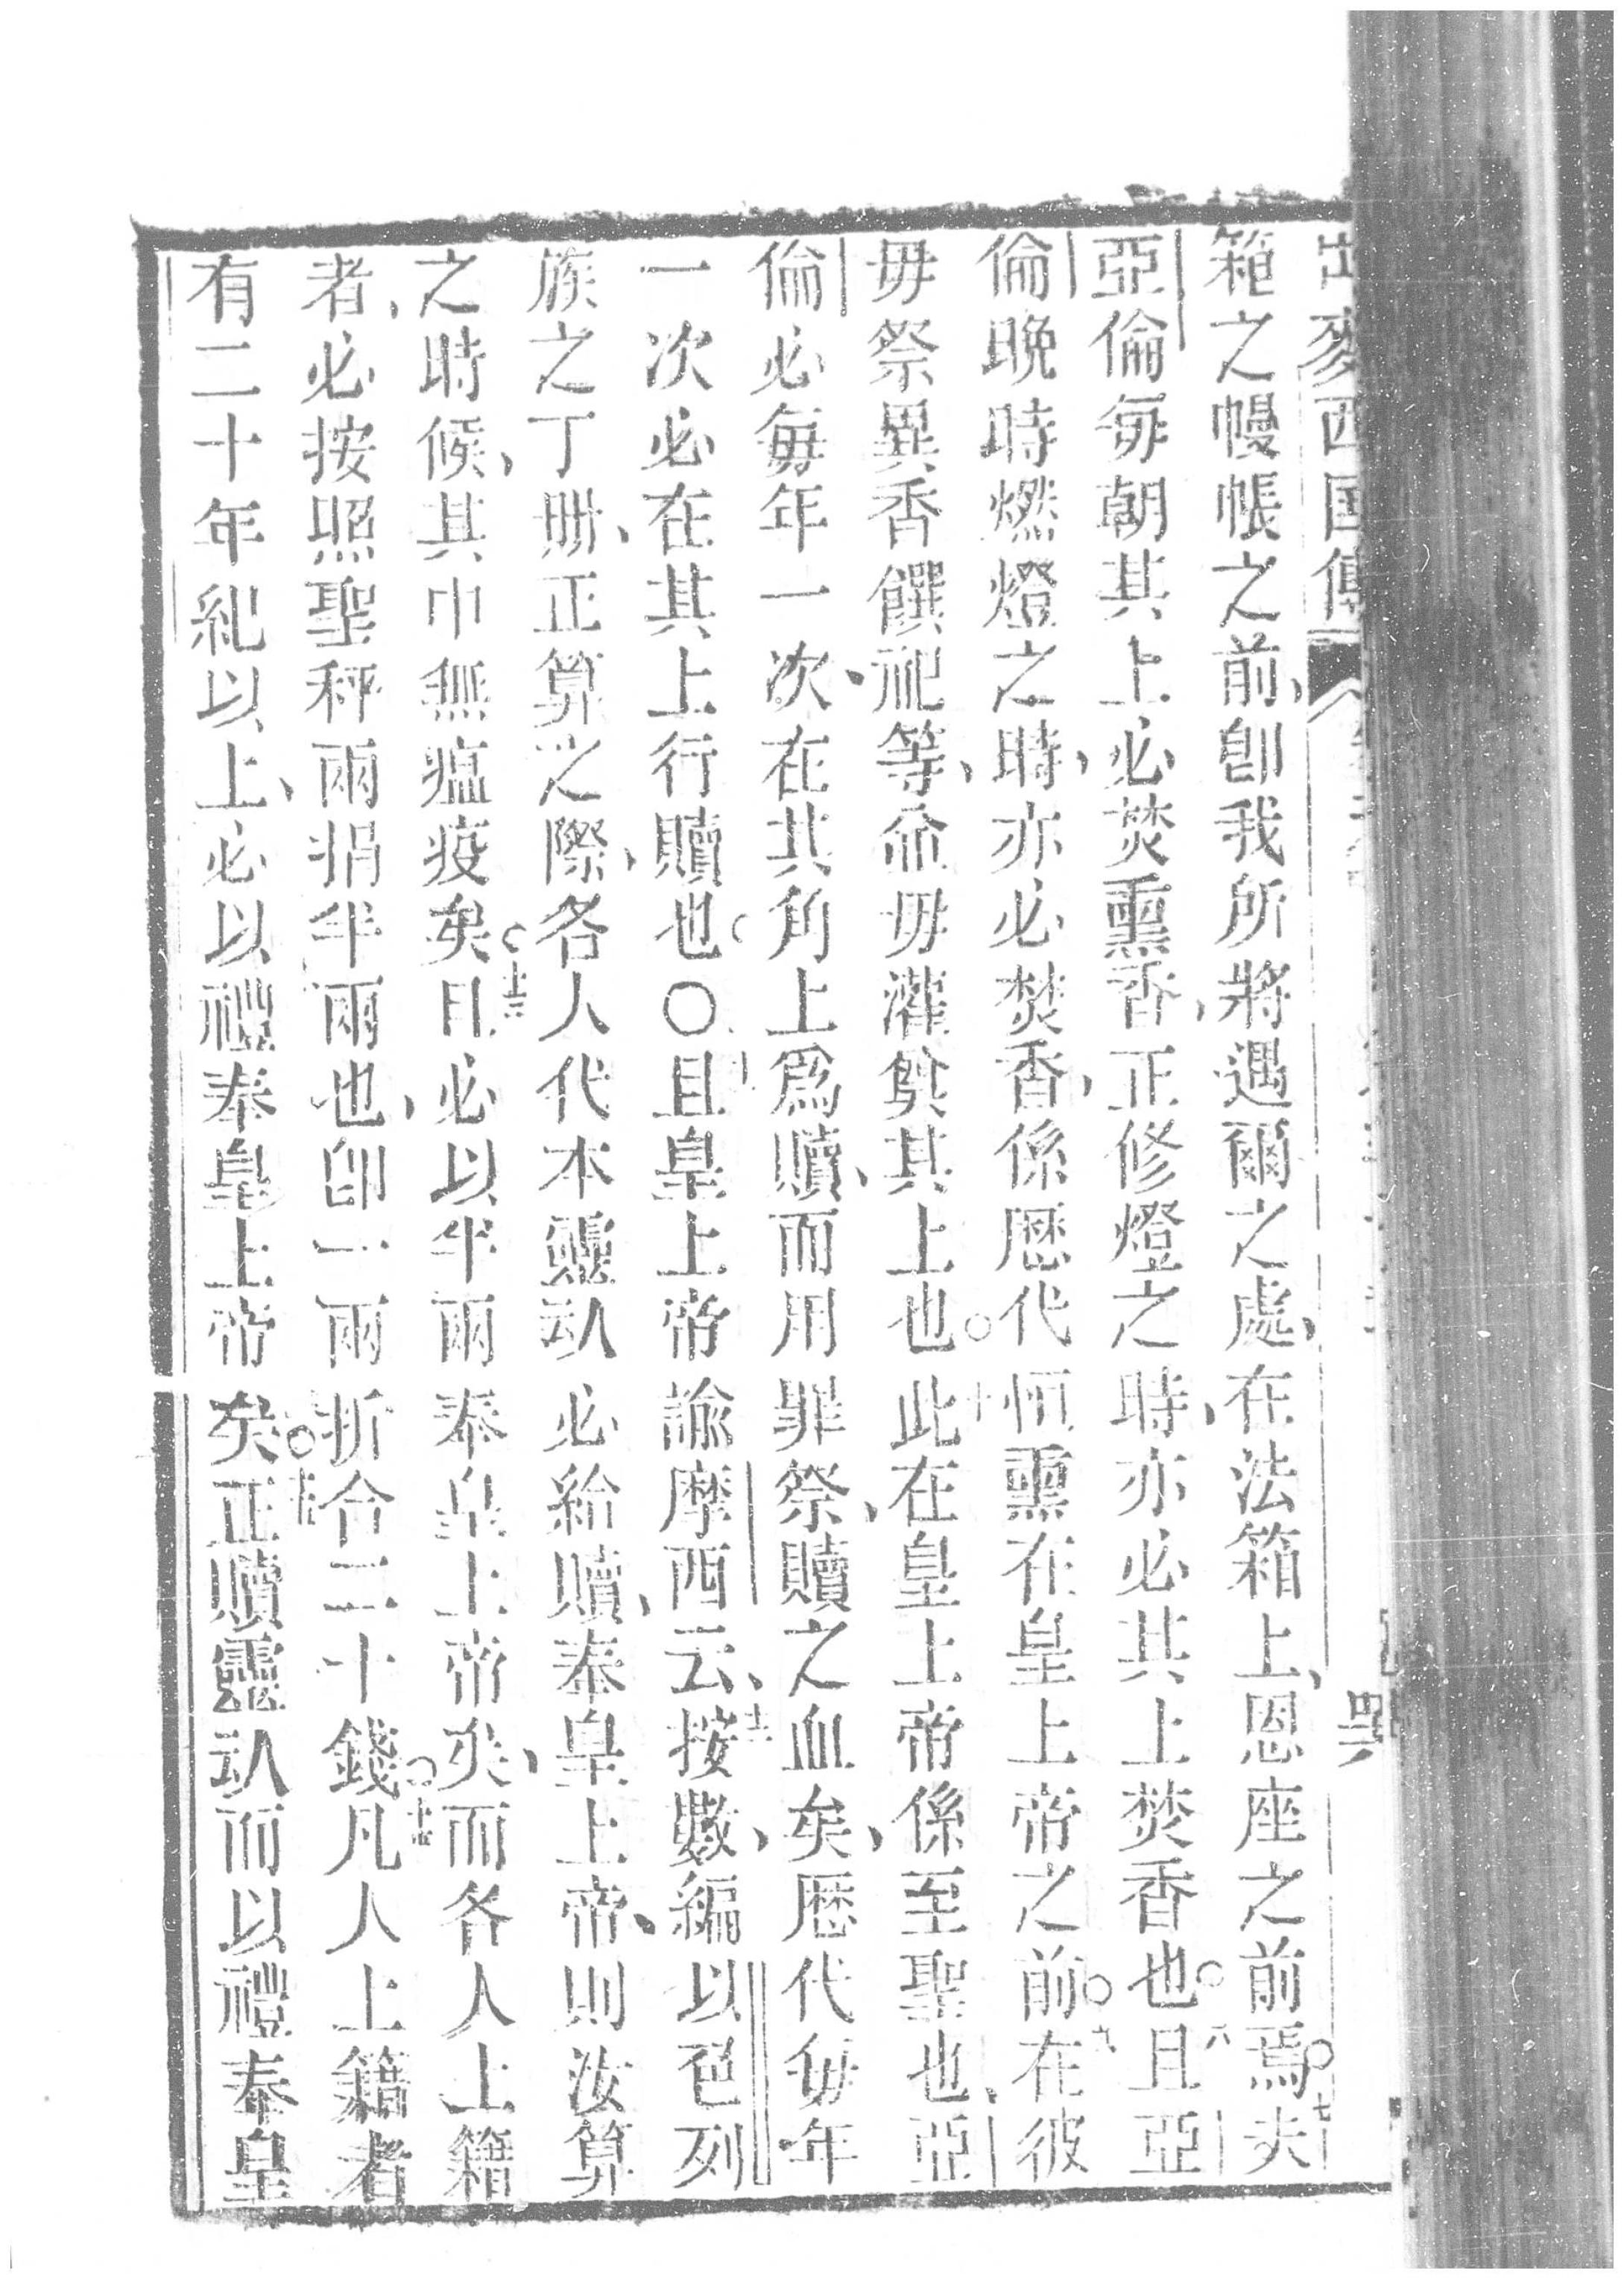 出麥西國傳
箱之幔帳之前、卽我所將遇爾之處、在法箱上、恩座之前焉。七夫
亞倫每朝其上必焚熏香、正修燈之時、亦必其上焚香也。八且亞
倫晚時燃燈之時、亦必焚香、係歷代恒熏在皇上帝之前。九在彼
毋祭異香饌祀等、並毋灌奠其上也。十此在皇上帝係至聖也、亞
倫必每年一次、在其角上爲贖、而用罪祭、贖之血矣、歷代每年
一次必在其上行贖也。〇十一且皇上帝諭摩西云、十二按數、編以色列
族之丁册、正算之際、各人代本靈𠃔必給贖、奉皇上帝、則汝算
之時候、其巾無瘟疫矣。十三且必以半兩奉皇上帝矣、而各人上籍
者、必按照聖秤兩捐半兩也、卽一兩折合二十錢。十四凡人上籍者
有二十年紀以上、必以禮奉皇上帝矣。十五正贖靈𠃔而以禮奉皇